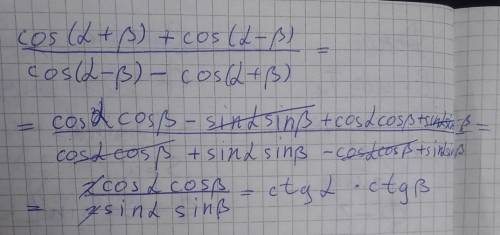 cos(α+β) + cos(α-β) =
cos(α-β) - cos(α+β)
= cosα cosβ - sinα sinβ + cosα cosβ + sinα sinβ =
cosα cosβ + sinα sinβ - cosα cosβ + sinα sinβ
= 2cosα cosβ = ctgα · ctgβ
2sinα sinβ